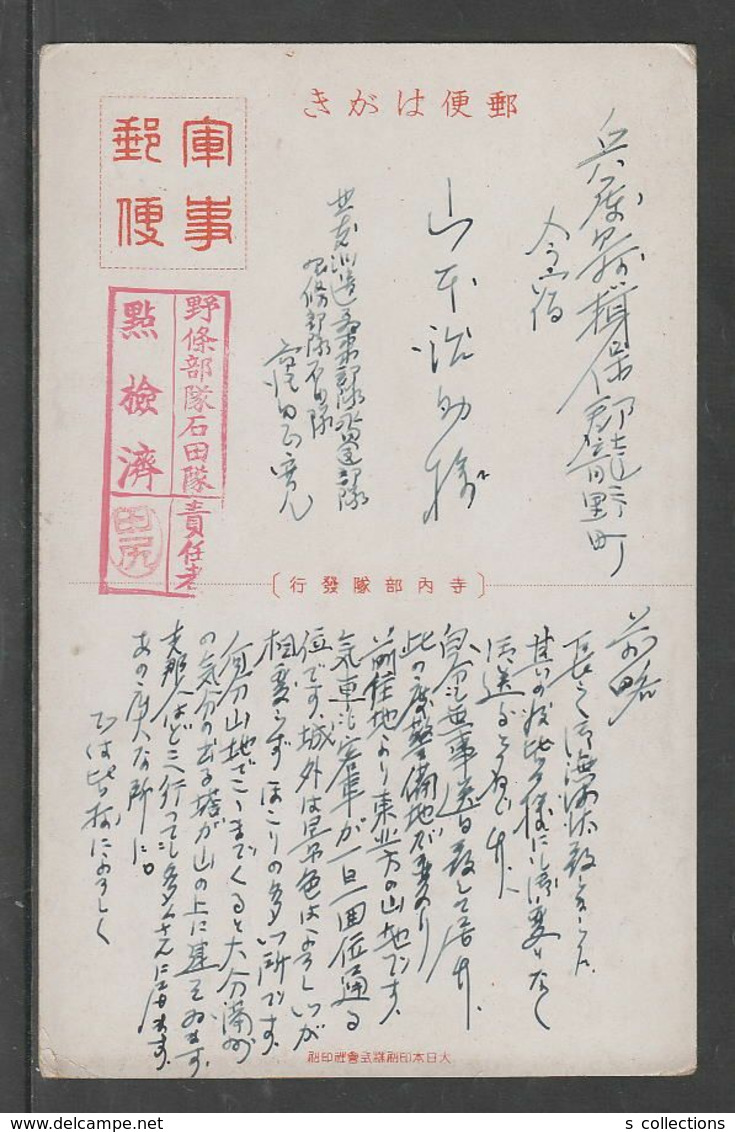 郵便はがき
軍事
郵便
野條部隊石田隊責任者
點檢濟
田尻
兵庫縣揖保郡龍野町
今宿
山本治助様
北支派遣
部隊石田隊
寺内部隊發行
前略
長らく御無沙汰致しました
其の後皆々様にも御変りなく
自分も無事送日致して居ます
此の度警備地が変り
前住地より東北方の山地です。
気車も客車が一日一回位通る
位です、城外は景色はよろしいが
相変らずほこりの多い所です。
何分山地でここまでくると大分満州
の気分の出る塔が山の上に建てゐます。
支那人はどこへ行っても多くさんに居ます。
あの廣大な所に。
では皆々様によろしく
大日本印刷株式會社印刷
s collections